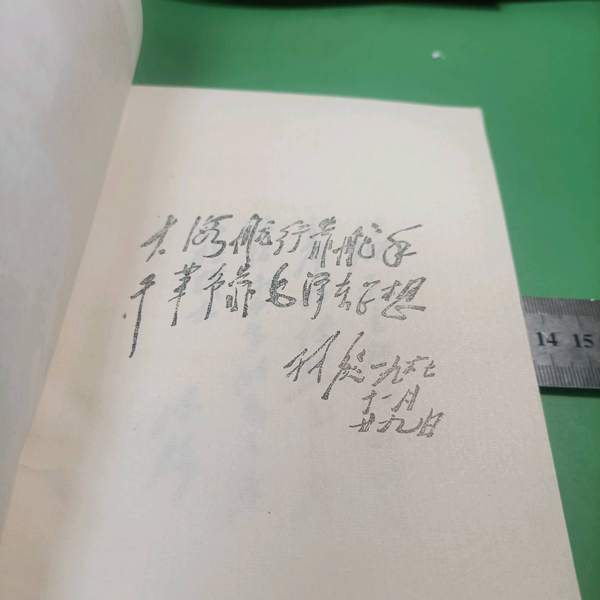 大海航行靠舵手
干革命靠毛泽东思想
林彪 一九六七
十一月
廿九日
14 15